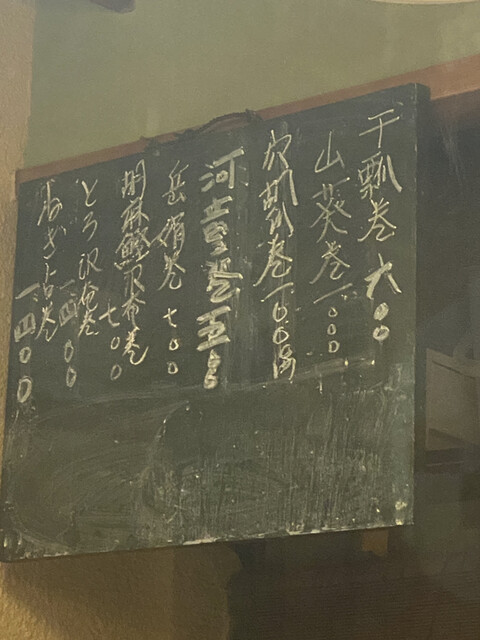 干瓢巻 六〇〇
山葵巻 一〇〇〇
穴瓢巻 一〇〇〇
河童巻 五〇〇
岳娟巻 七〇〇
胡麻鰹沢布巻
七〇〇
とろ沢布巻
一四〇〇
ねぎとろ巻
一四〇〇